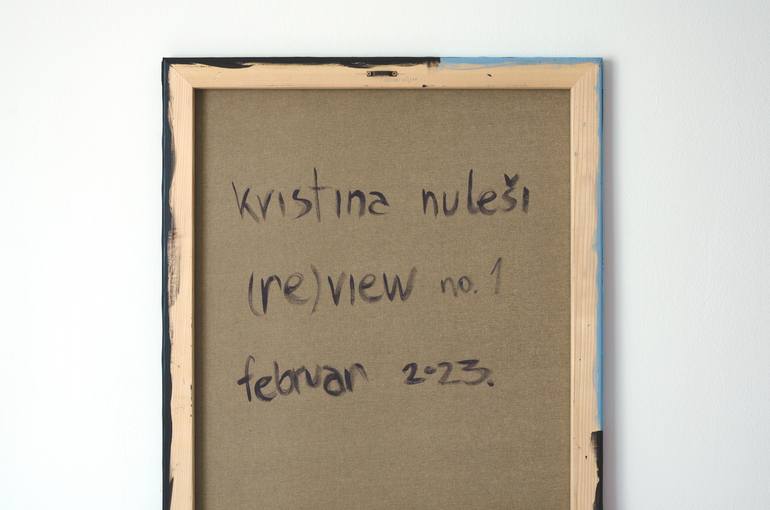 kristina nuleši
(re)view no. 1
februar 2023.